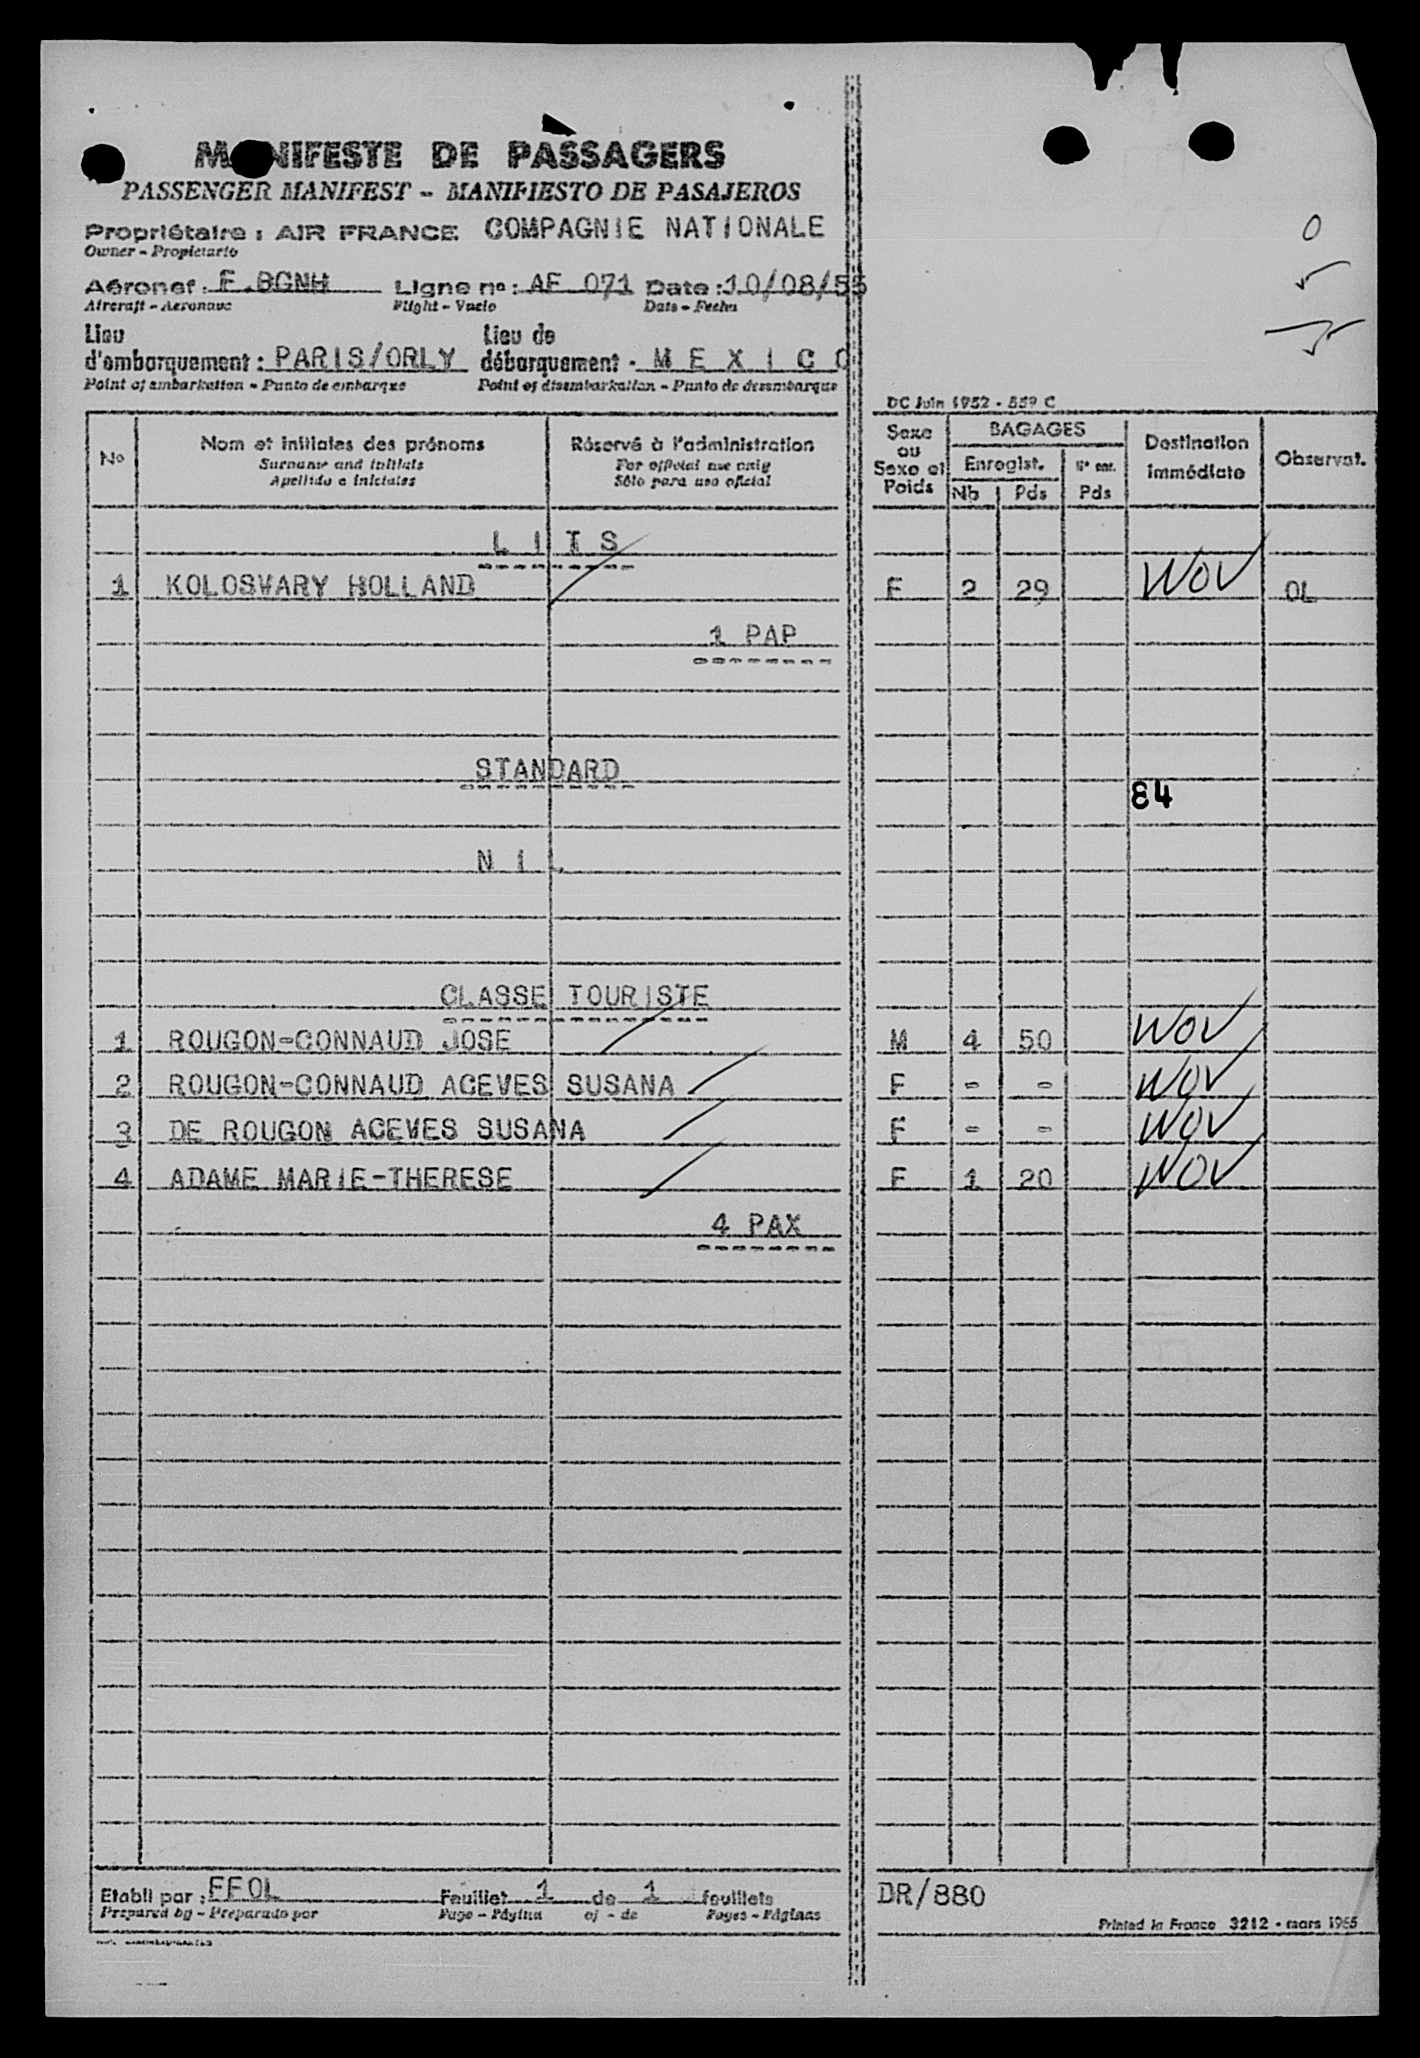 MANIFESTE DE PASSAGERS
PASSENGER MANIFEST - MANIFIESTO DE PASAJEROS
Propriétaire : AIR FRANCE COMPAGNIE NATIONALE
Owner - Propietario
Aéronef : F.BGNH Ligne no : AF 071 Date : 10/08/55
Aircraft - Aeronave Flight - Vuelo Date - Fecha
Lieu d'embarquement : PARIS/ORLY Lieu de débarquement - M E X I C O
Point of embarkation - Punto de embarque Point of disembarkation - Punto de desembarque
O
5
5
DC Juin 1952 - 859 C
No Nom et initiales des prénoms Réservé à l'administration Sexe ou Sexe et Poids BAGAGES Destination immédiate Observat.
Surname and initials For official use only Enregist. No enr.
Apellido e iniciales Sólo para uso oficial Nb Pds Pds
L I T S
1 KOLOSVARY HOLLAND F 2 29 WOV OL
1 PAP
STANDARD
84
N I L
CLASSE TOURISTE
1 ROUGON-CONNAUD JOSE M 4 50 WOV
2 ROUGON-CONNAUD ACEVES SUSANA F - - WOV
3 DE ROUGON ACEVES SUSANA F - - WOV
4 ADAME MARIE-THERESE F 1 20 WOV
4 PAX
Etabli par : FFOL Feuillet 1 de 1 feuillets DR/880
Prepared by - Preparado por Page - Página of - de Pages - Páginas
Printed in France 3212 - mars 1955